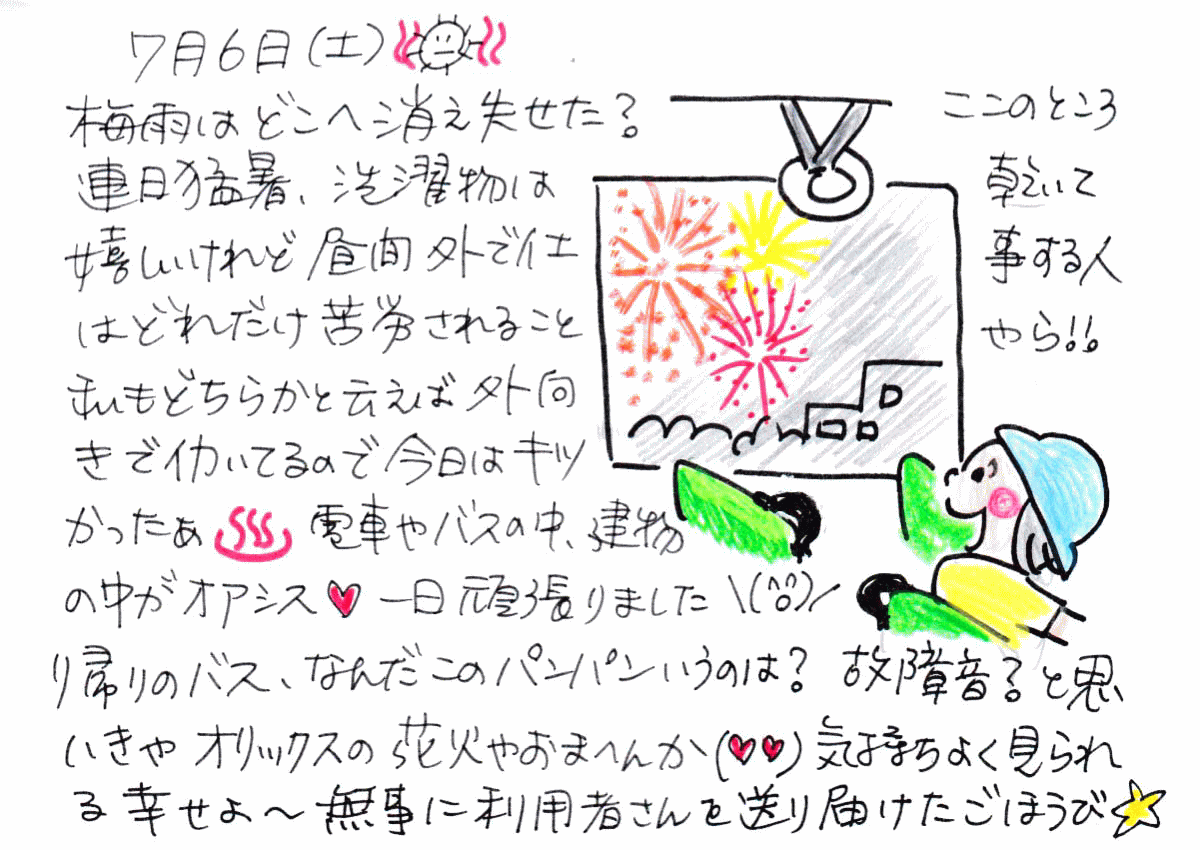 7月6日(土)
梅雨はどこへ消え失せた?ここのところ
連日猛暑、洗濯物は乾いて
嬉しいけれど昼間外で仕事する人
はどれだけ苦労されることやら!!
私もどちらかと云えば外向
きで仂いてるので今日はキツ
かったぁ♨電車やバスの中、建物
の中がオアシス♥一日頑張りました\(^o^)/
帰りのバス、なんだこのパンパンいうのは?故障音?と思
いきやオリックスの花火やおまへんか(♥♥)気持ちよく見られ
る幸せよ〜無事に利用者さんを送り届けたごほうび☆